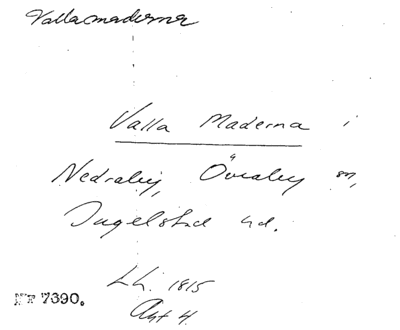 Vallamaderna
Valla Maderna i
Nedraby, Övraby sn,
Ingelstad hd.
LL. 1815
Akt 4.
Nr 7390.